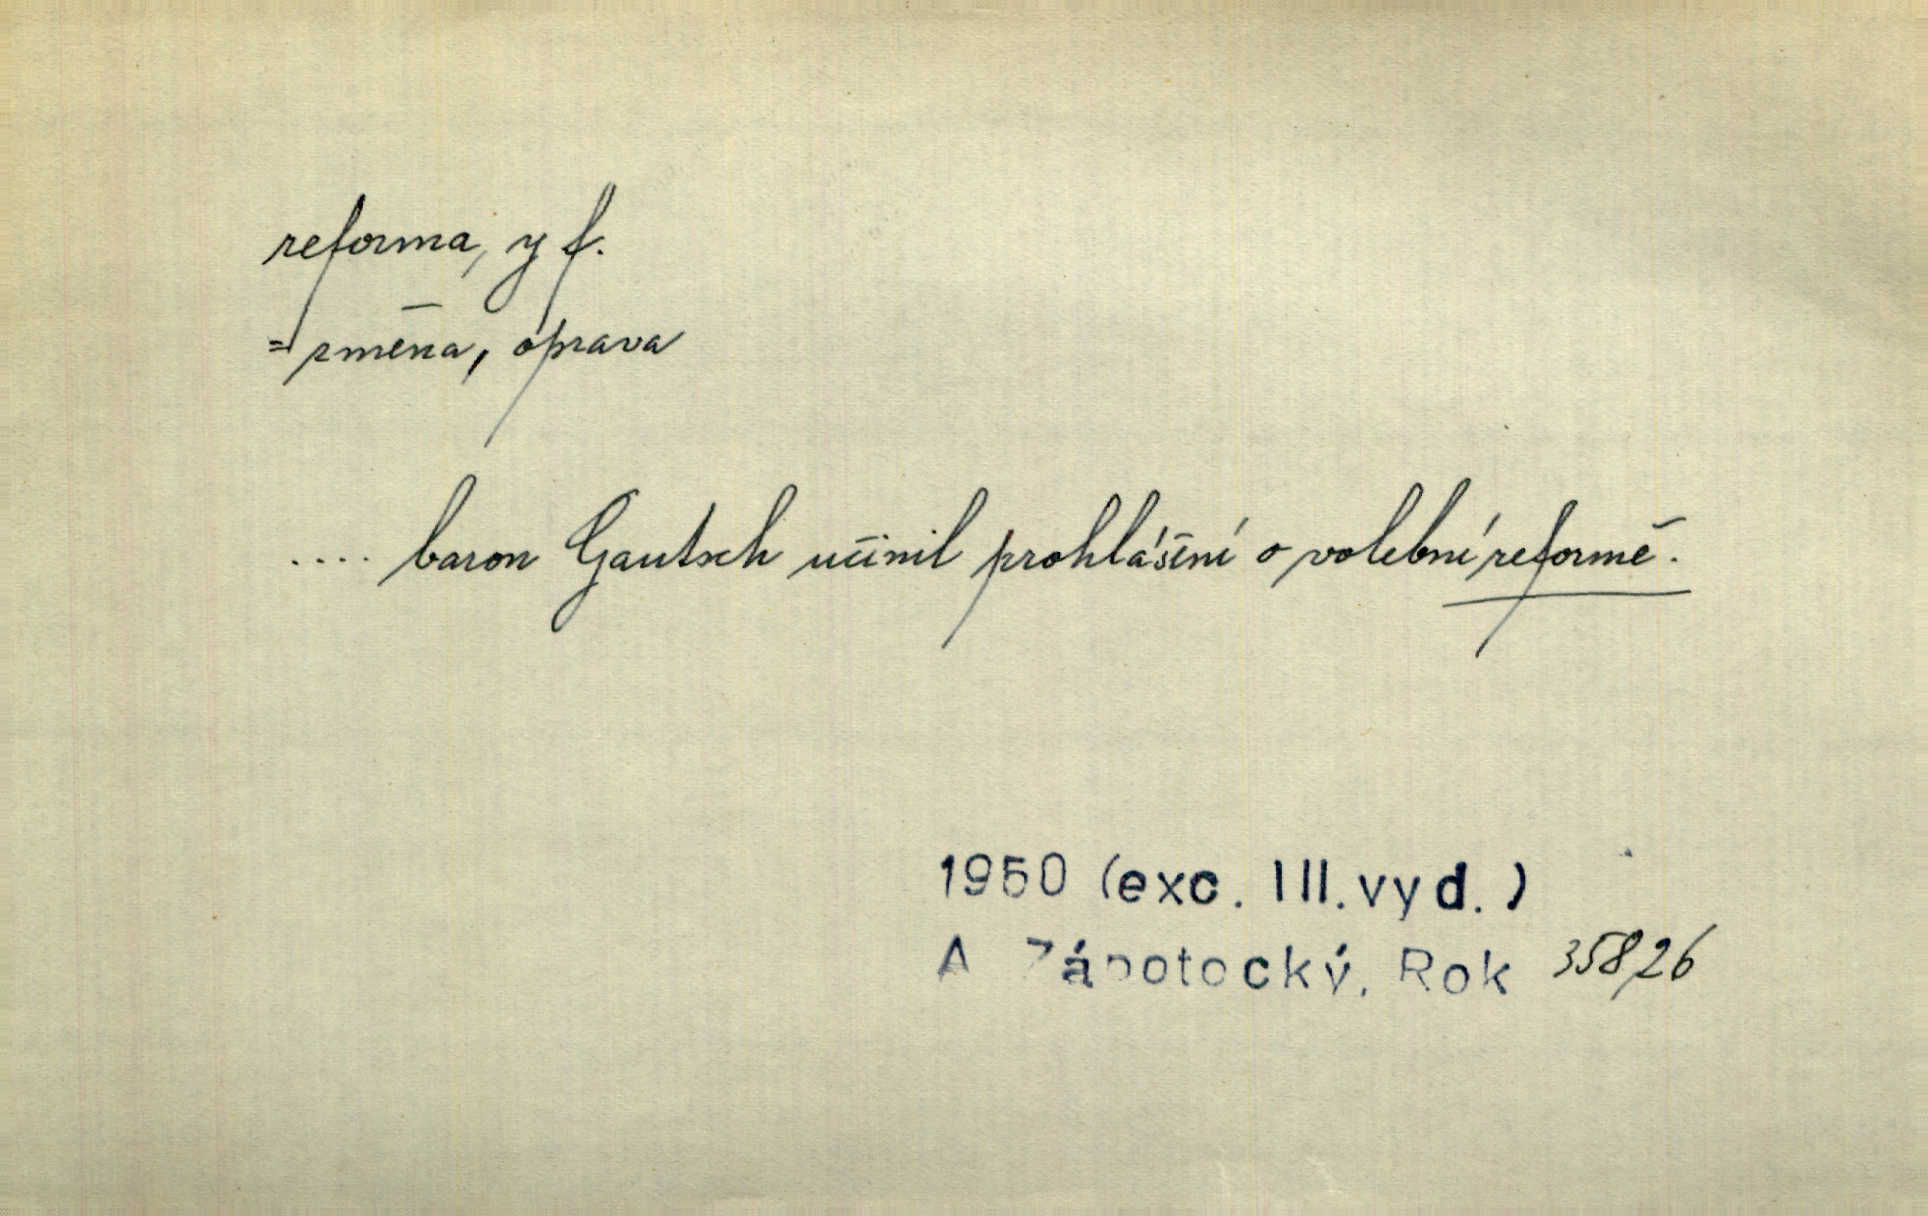 reforma, y f.
= změna, oprava
.... baron Gautsch učinil prohlášení o volební reformě.
1950 (exc. III. vyd.)
A Zápotocký, Rok 358,26